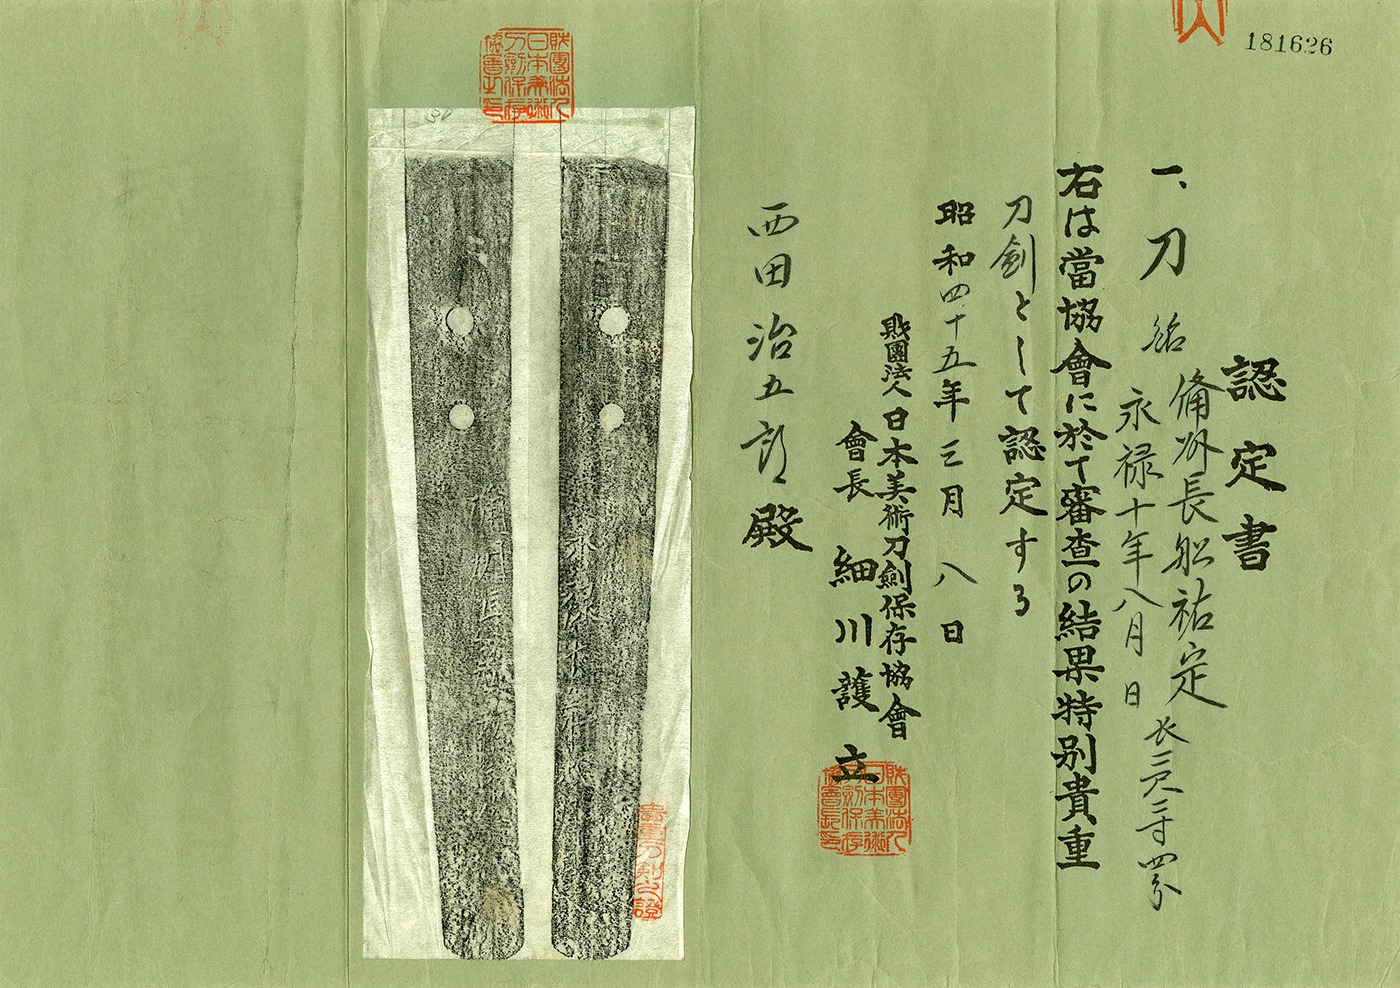 181626
認定書
一、刀 銘 備州長船祐定
永禄十年八月日
長二尺二寸四分
右は當協會に於て審査の結果特別貴重
刀劍として認定する
昭和四十五年三月八日
財團法人日本美術刀劍保存協會
會長 細川護立
西田治五郎殿
財團法人日本美術刀劍保存協會長印
財團法人日本美術刀劍保存協會長印
永禄十年八月
備州長船祐定
貴重刀剣之證